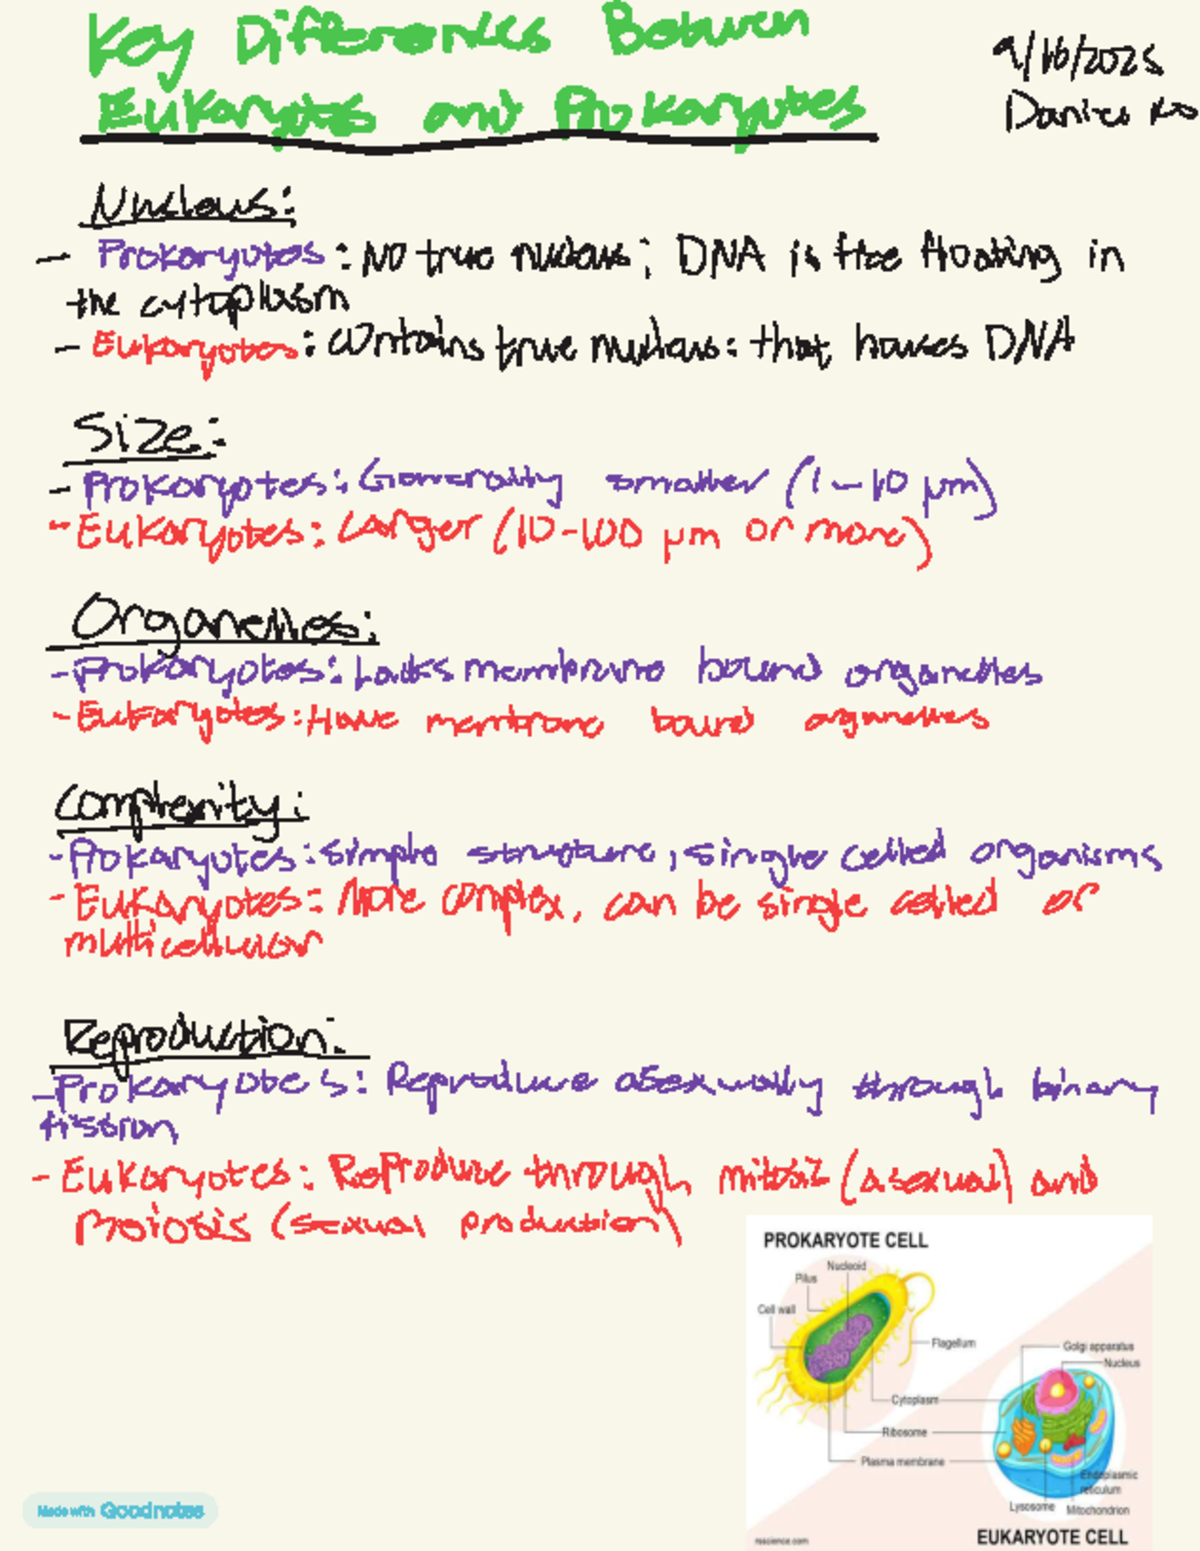 Key Differences Between
9/16/2025
Eukaryotes and Prokaryotes
Nucleus:
- Prokaryotes: No true nucleus; DNA is free floating in
the cytoplasm
- Eukaryotes: contains true nucleus: that houses DNA
Size:
- Prokaryotes: Generally smaller (1-10 μm)
- Eukaryotes: Larger (10-100 μm or more)
Organelles:
- Prokaryotes: Lacks membrane bound organelles
- Eukaryotes: Have membrane bound organelles
Complexity:
- Prokaryotes: simple structure, single celled organisms
- Eukaryotes: More complex, can be single celled or
multicellular
Reproduction:
- Prokaryotes: Reproduce asexually through binary
fission
- Eukaryotes: Reproduce through mitosis (asexual) and
meiosis (sexual production)
PROKARYOTE CELL
Nucleoid
Pilus
Cell wall
Flagellum
Golgi apparatus
Nucleus
Cytoplasm
Ribosome
Plasma membrane
Endoplasmic
reticulum
Lysosome
Mitochondrion
rsscience.com
EUKARYOTE CELL
Made with Goodnotes